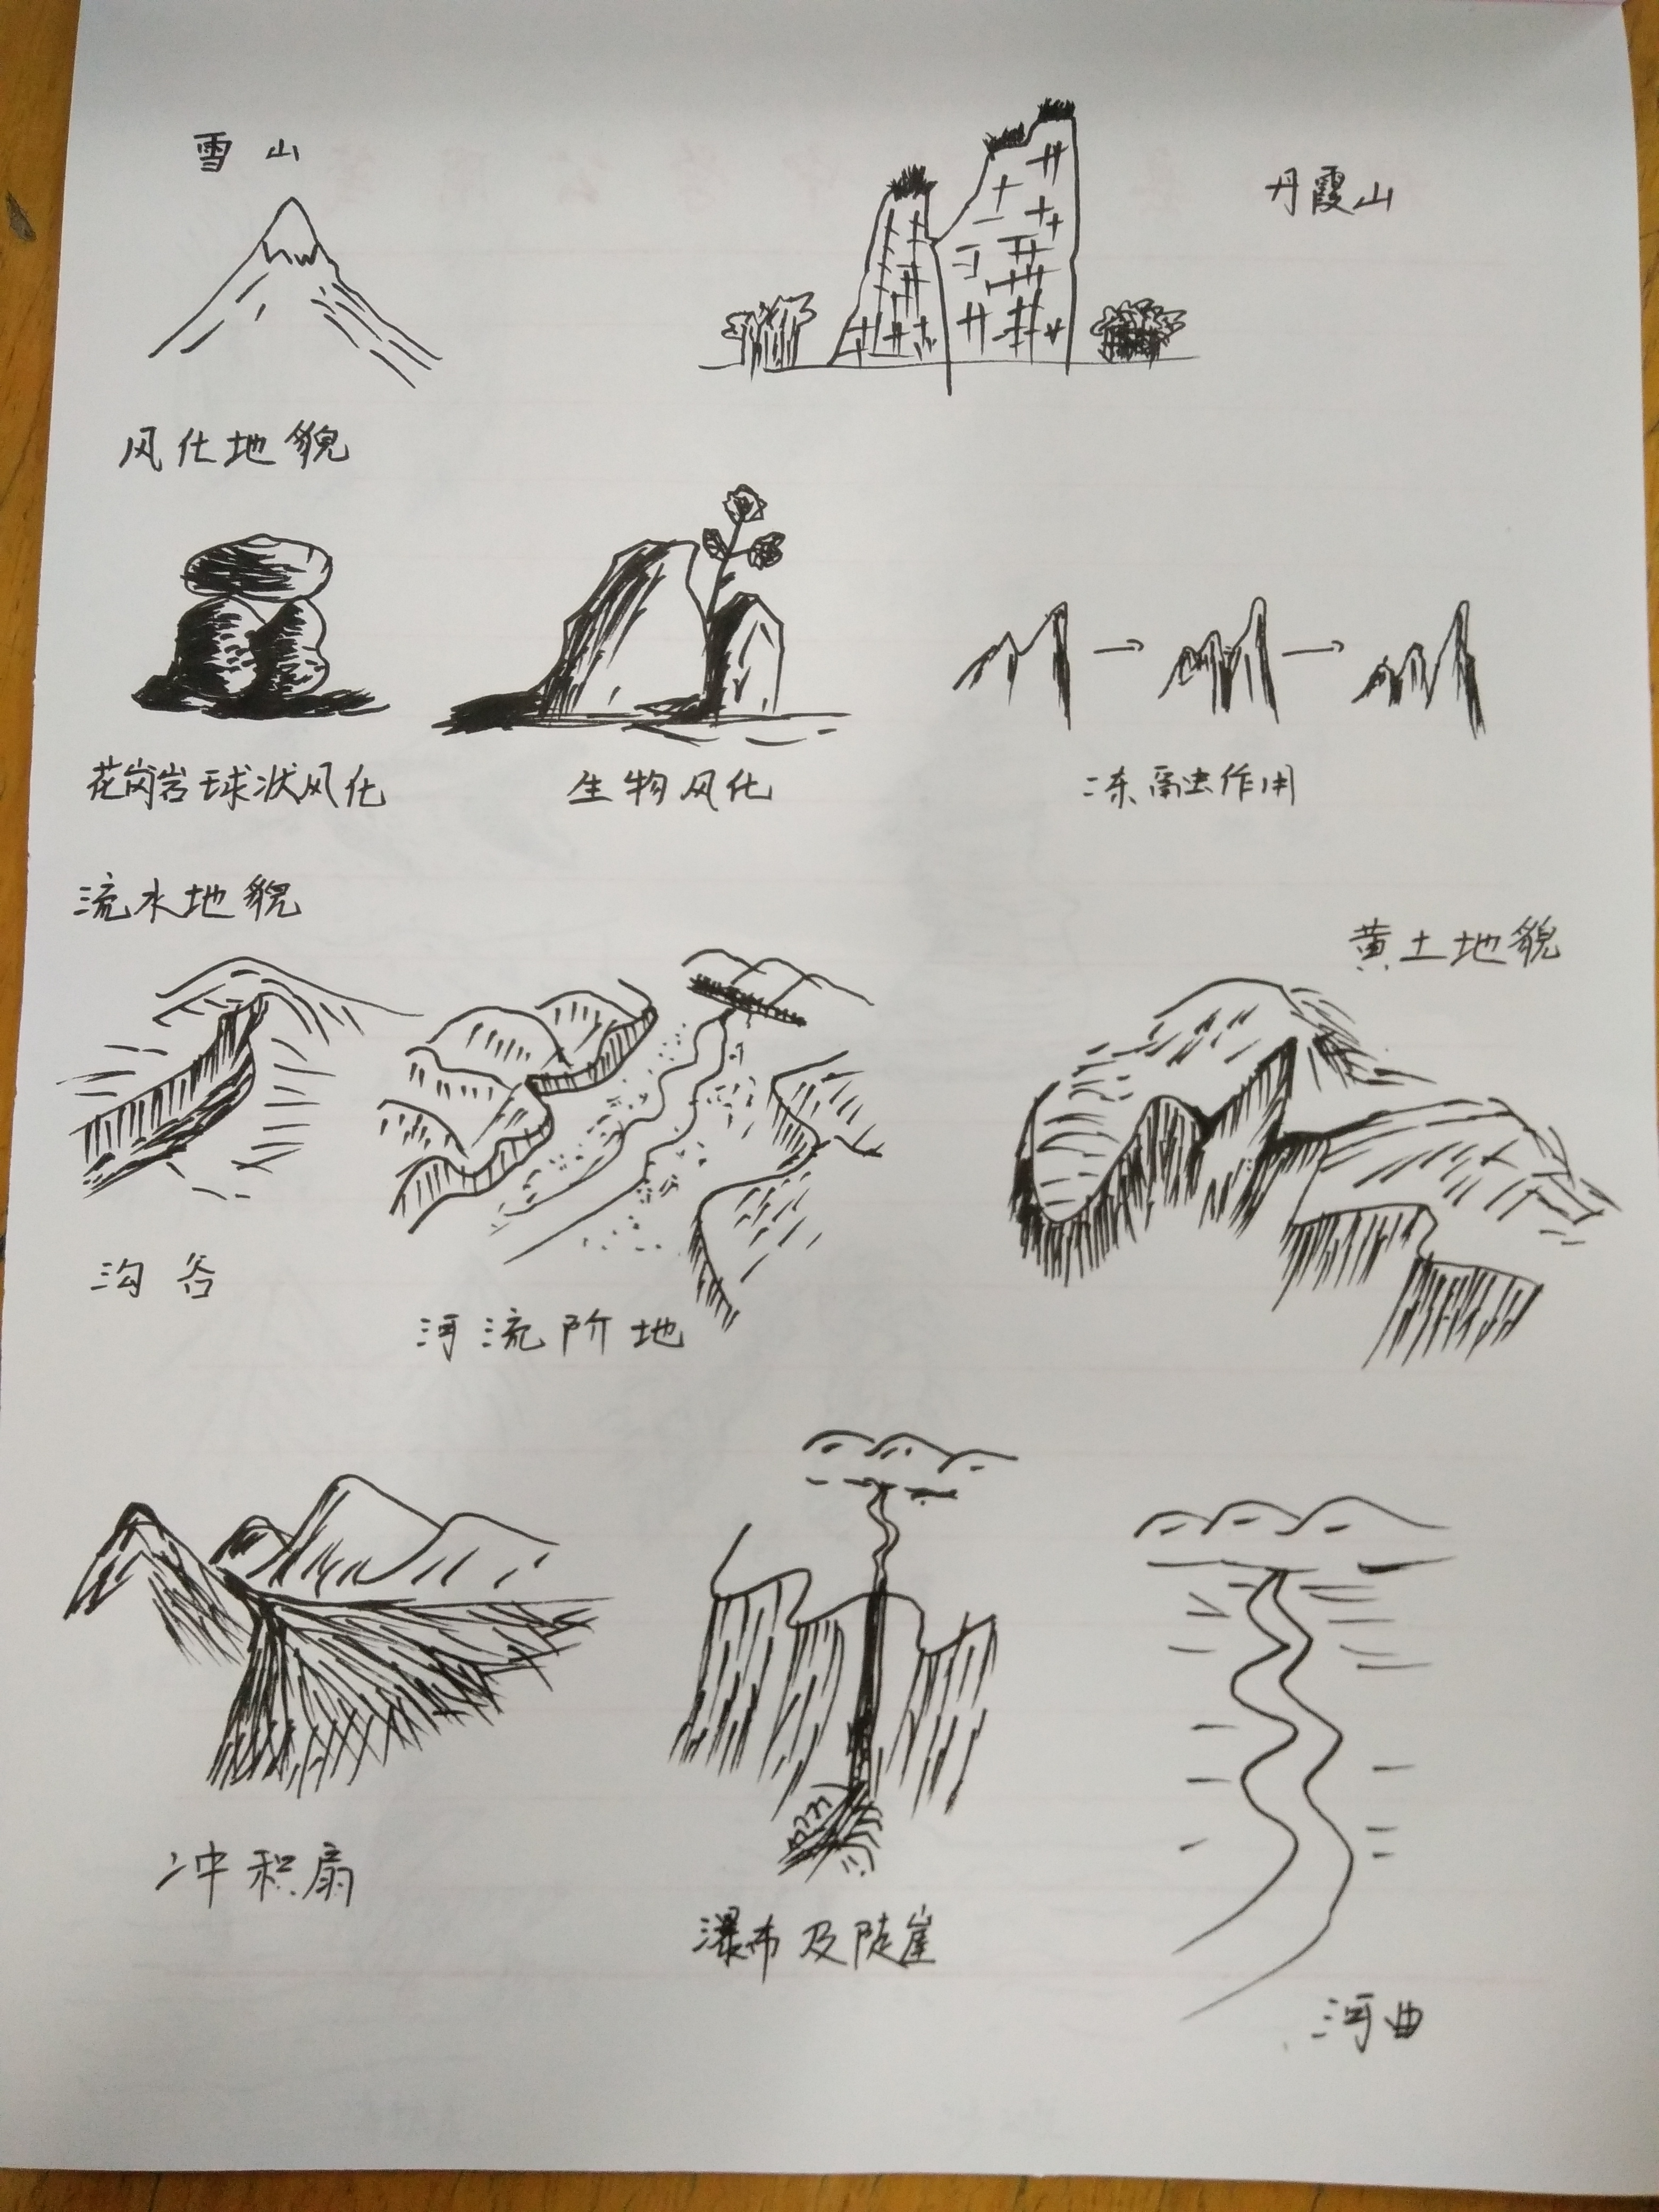 雪山
丹霞山
风化地貌
花岗岩球状风化
生物风化
冻融作用
流水地貌
黄土地貌
沟谷
河流阶地
冲积扇
瀑布及陡崖
河曲